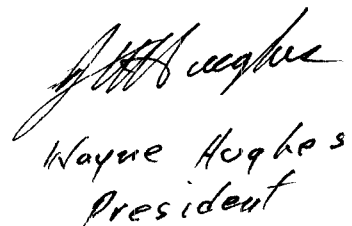 Hughes
Wayne Hughes
President